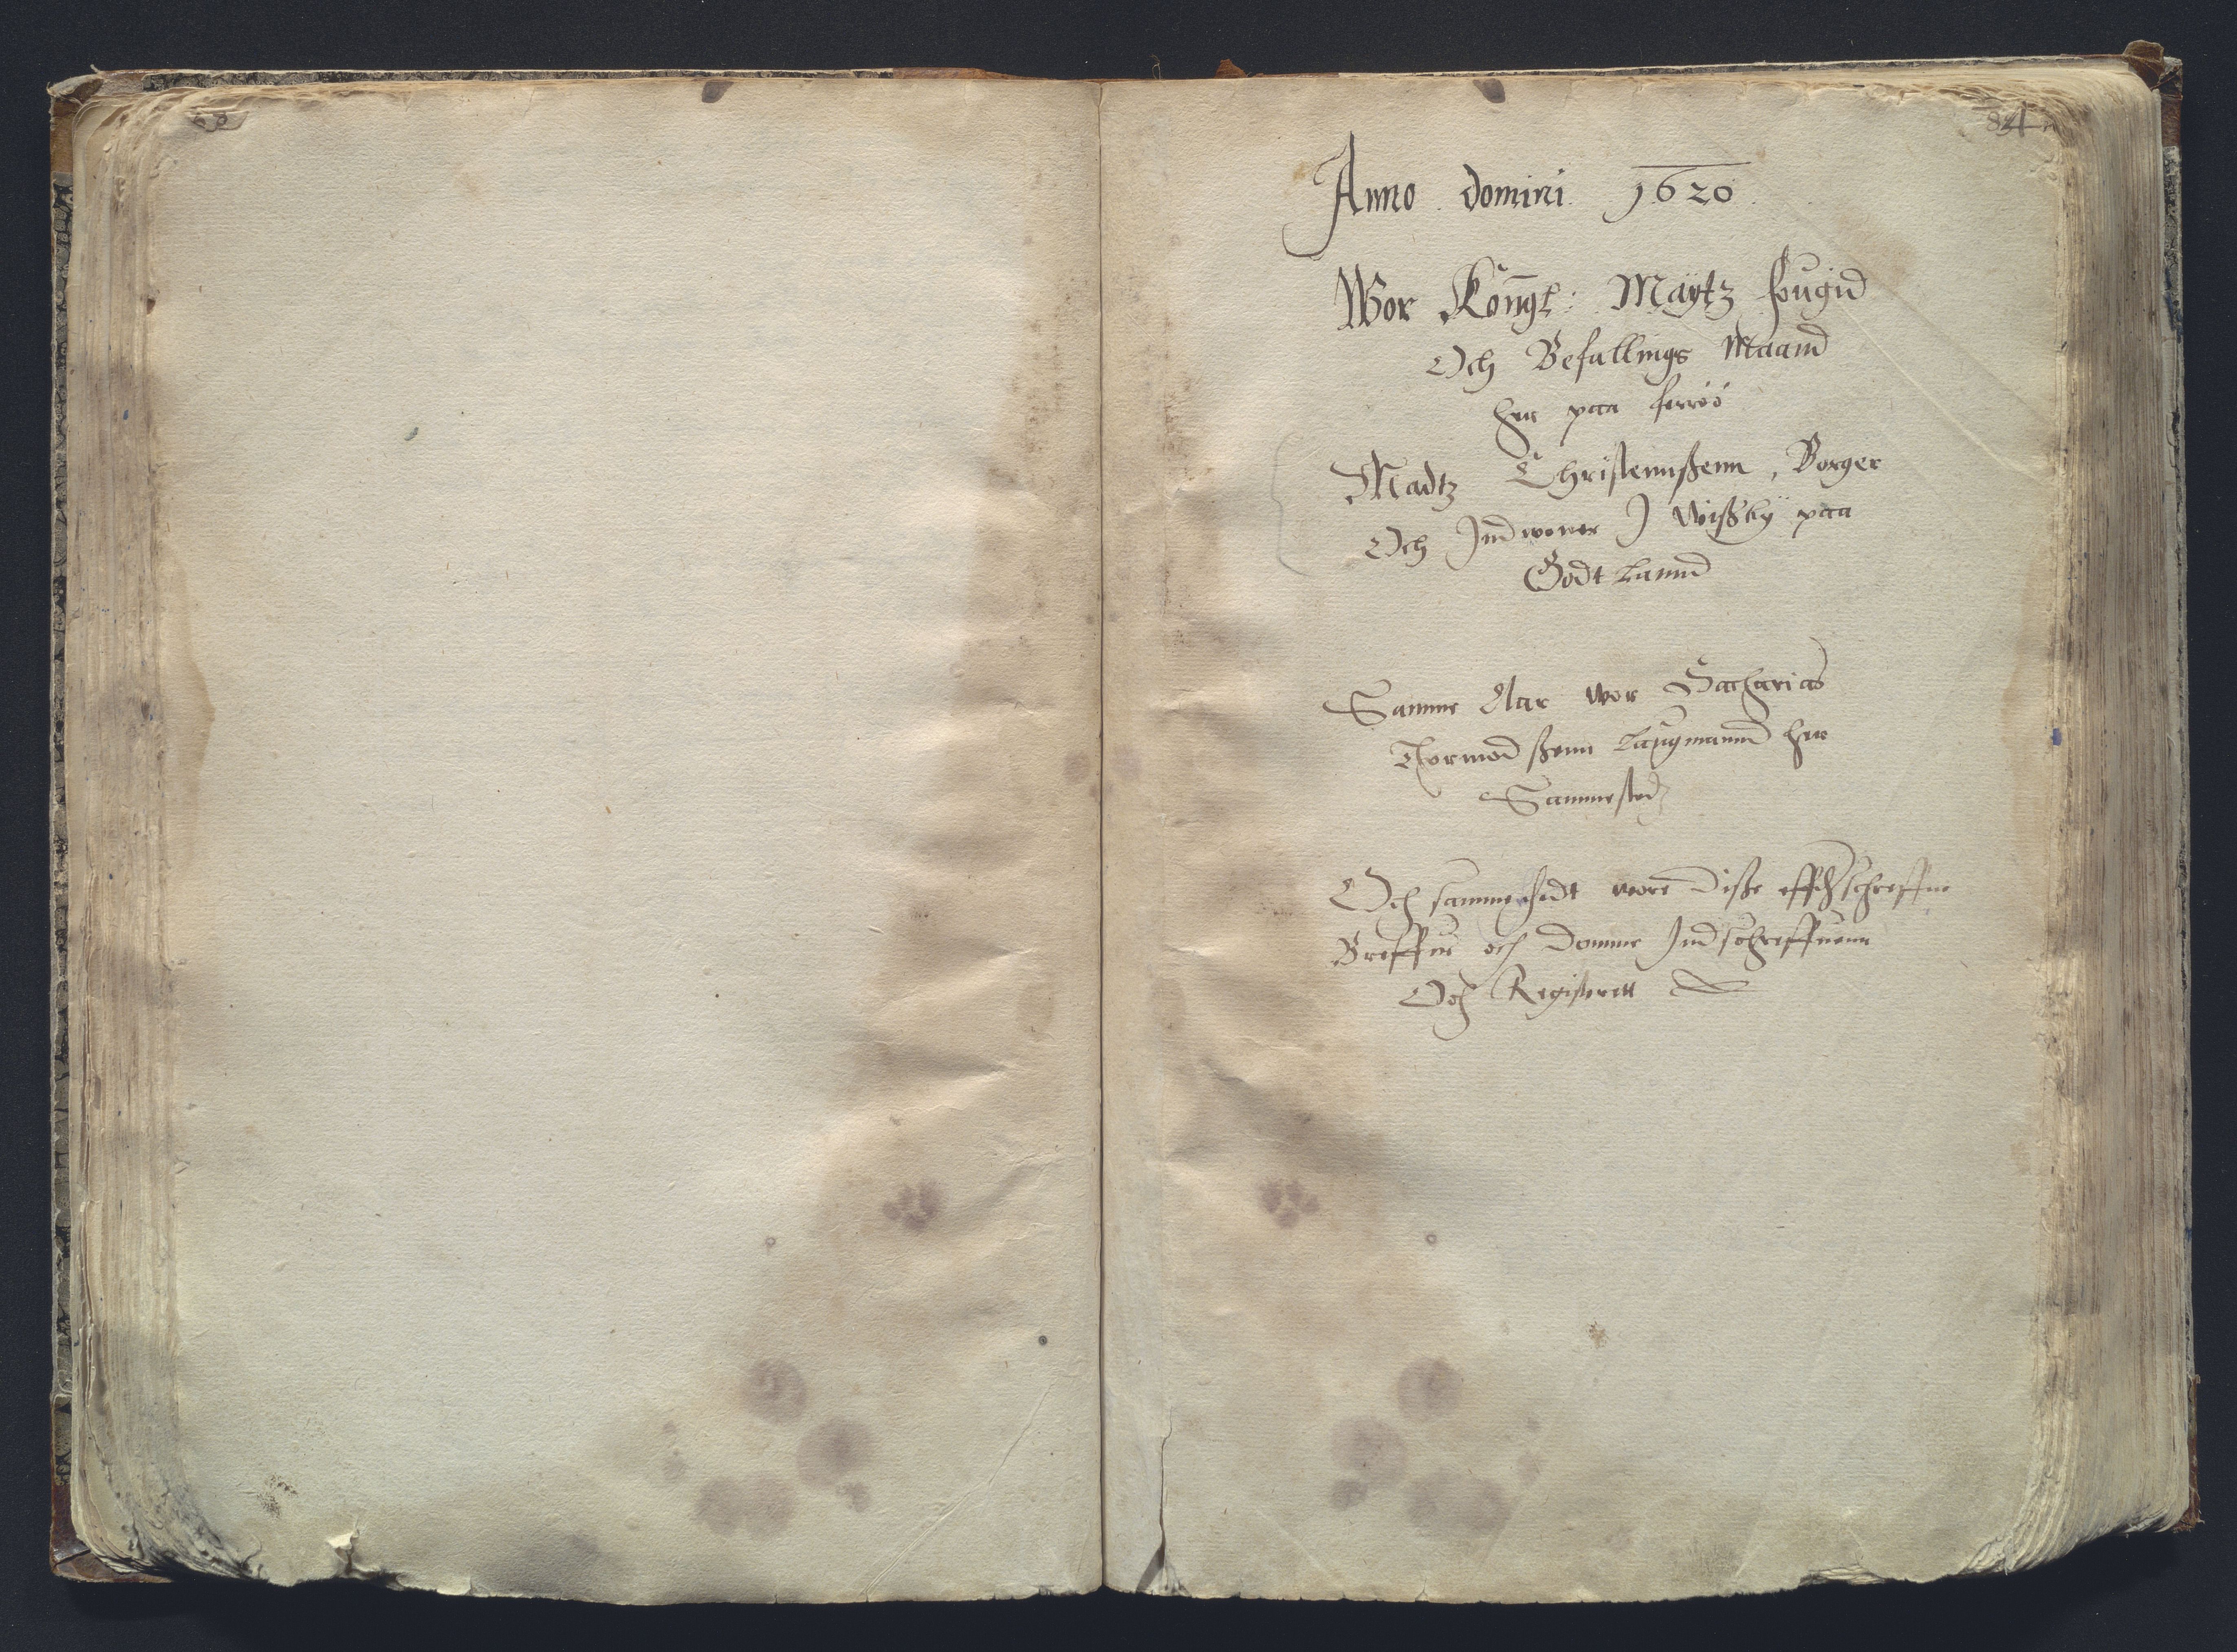 84
Anno domini 1620.
Wor Kongl: Maÿtz fougid
Och Befallings Maand
her paa ferröö
Madtz Christennßenn, Borger
Och Jndwoner J Wißbÿ paa
Godtlannd
Samme Aar wor Zacharias
Thormodßenn Laugmannd her
Sammestedz
Och sammestedt wore Disse effthschreffne
Breffue och Domme Jndschreffuenn
Och Registerett